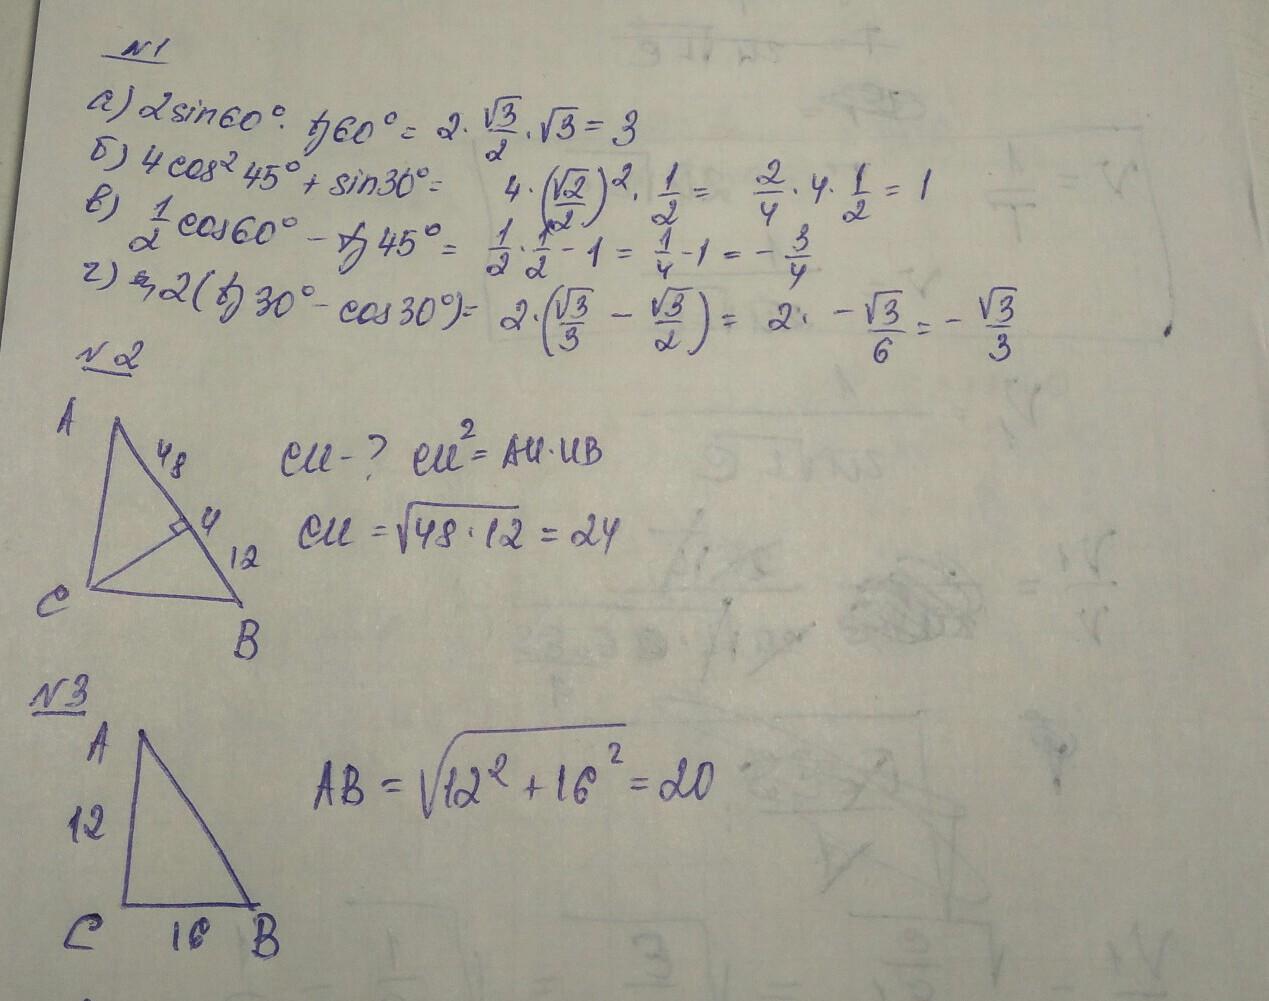 N1
а) 2sin60°· tg60° = 2·√3/2·√3 = 3
б) 4cos²45° + sin30° = 4·(√2/2)²·1/2 = 2/4·4·1/2 = 1
в) 1/2cos60° - tg45° = 1/2·1/2 - 1 = 1/4 - 1 = -3/4
г) 2(tg30° - cos30°) = 2·(√3/3 - √3/2) = 2· -√3/6 = -√3/3
N2
A
48
CH - ? CH² = AH·HB
H
CH = √48·12 = 24
12
C
B
N3
A
12
AB = √12² + 16² = 20
C 16 B